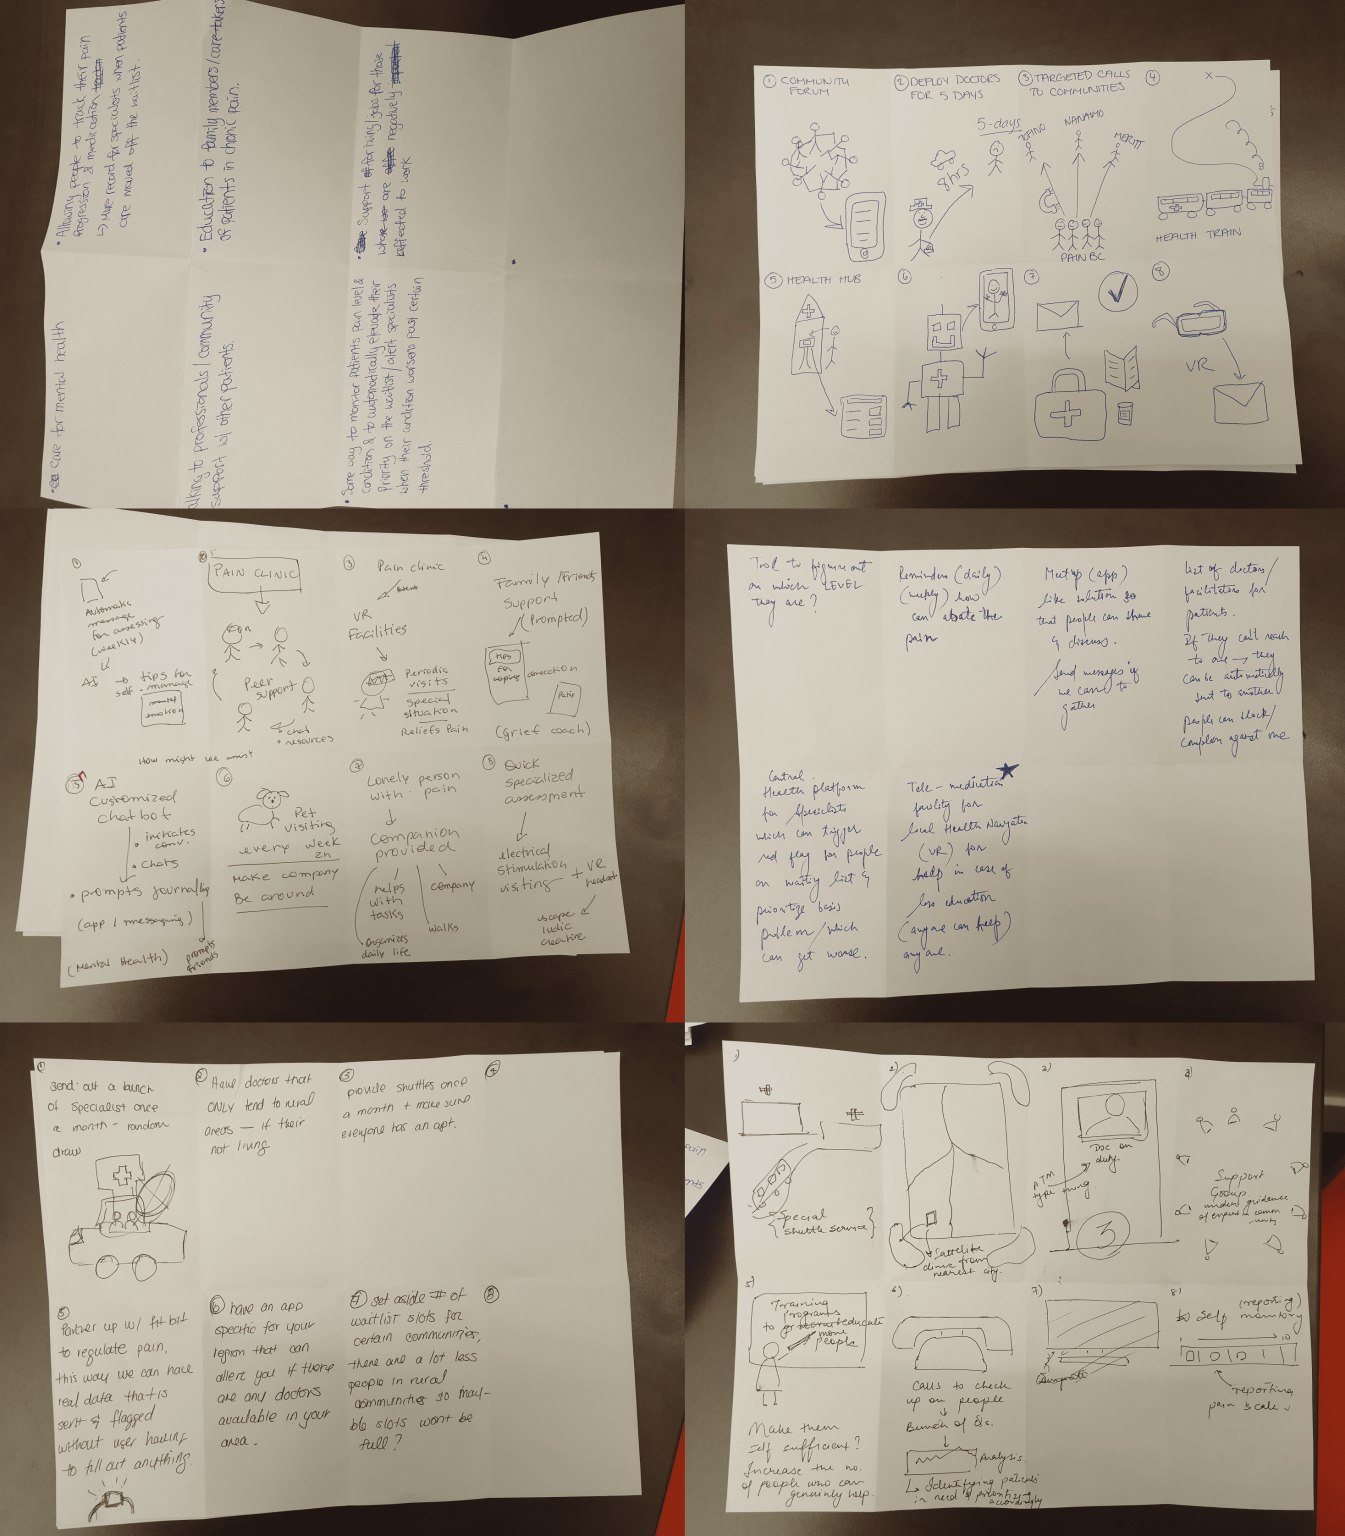 • Allowing people to track their pain
progression & medication
↳ More record for specialists when patients
are moved off the waitlist.
• Education to family members/care-takers
of patients in chronic pain.
• Support for living/jobs for those
who are negatively
affected to work
• Care for mental health
alking to professionals/community
support w/ other patients.
• Some way to monitor patients pain level &
condition & to automatically elevate their
priority on the waitlist/alert specialists
when their condition worsens past certain
threshold.
① COMMUNITY
FORUM
② DEPLOY DOCTORS
FOR 5 DAYS
5-days
8hrs
③ TARGETED CALLS
TO COMMUNITIES
TOFINO
NANAIMO
MERITT
PAIN BC
④
X
HEALTH TRAIN
⑤ HEALTH HUB
⑥
⑦
⑧
VR
①
Automatic
message
for assessing
(weekly)
AI → tips for
self-manage
mental
emotion
②
PAIN CLINIC
Peer
support
• chat
• resources
③ Pain clinic
VR
Facilities
Periodic
visits
special
situation
Reliefs Pain
④
Family/Friends
Support
(Prompted)
tips
for
coping
connection
(Grief coach)
How might we assist
⑤ AI
customized
chatbot
• initiates
conv.
• chats
• prompts journaling
(app / messaging)
(Mental Health)
prompts
friends
⑥
Pet
visiting
every week
2h
Make company
Be around
⑦ Lonely person
with pain
Companion
provided
helps
with
tasks
company
walks
organizes
daily life
⑧ Quick
specialized
assessment
electrical
stimulation
visiting + VR
headset
escape
ludic
creative
Tool to figure out
on which LEVEL
they are?
Reminders (daily)
(weekly) how
can abate the
pain
Meetup (app)
like solution so
that people can share
& discuss.
Send messages if
we can to
gather
List of doctors/
facilitators for
patients.
If they can't reach
to one → they
can be automatically
sent to another
people can block/
complain against one
Central
Health platform
for specialists
which can trigger
red flag for people
on waiting list &
prioritize basis
problem/which
can get worse.
Tele-medication
facility for
local Health Navigator
(VR) for
help in case of
less education
(anyone can help)
anyone.
①
send out a bunch
of specialist once
a month - random
draw
② Have doctors that
ONLY tend to rural
areas — if their
not living
③
provide shuttles once
a month + make sure
everyone has an apt.
④
⑤
Partner up w/ fit bit
to regulate pain.
this way we can have
real data that is
sent & flagged
without user having
to fill out anything
⑥ have an app
specific for your
region that can
alert you if there
are any doctors
available in your
area.
⑦ set aside # of
waitlist slots for
certain communities,
there are a lot less
people in rural
communities so may-
be slots wont be
full?
⑧
1)
{Special
shuttle service}
2)
Sattelite
clinic from
nearest city.
3)
Doc on
duty
ATM
type thing.
3
4)
Support
Group
under guidance
of expert in comm-
unity
5)
Training
programs
to educate
more
people
Make them
self sufficient?
Increase the no.
of people who can
genuinly help.
6)
Calls to check
up on people
Bunch of Qs.
Analysis.
↳ Identifying patients
in need & prioritizing
accordingly
7)
8)
(reporting)
Self monitory
1
10
reporting
pain scale